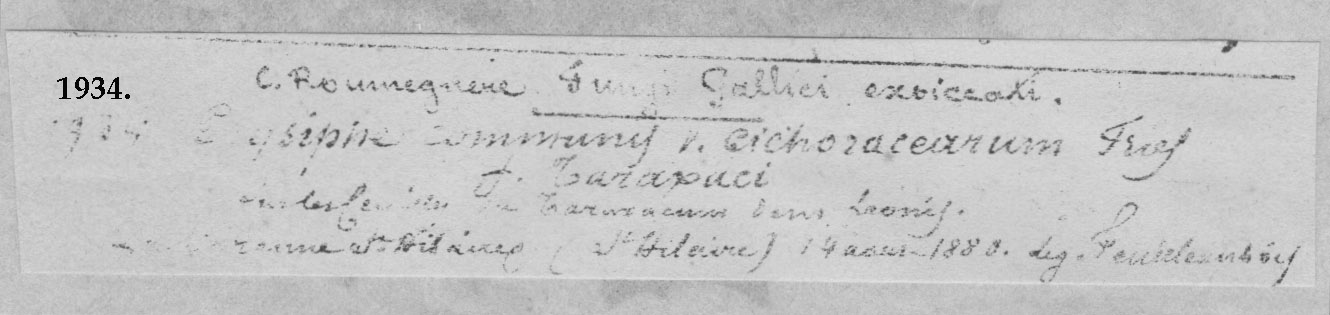 1934. C. Roumeguère. Fungi Gallici exsiccati.
Erysiphe communis v. cichoracearum Fries
f. Taraxaci
Taraxacum dens Leonis.
Varenne St Hilaire (St Hilaire) 14 aout 1880. leg.